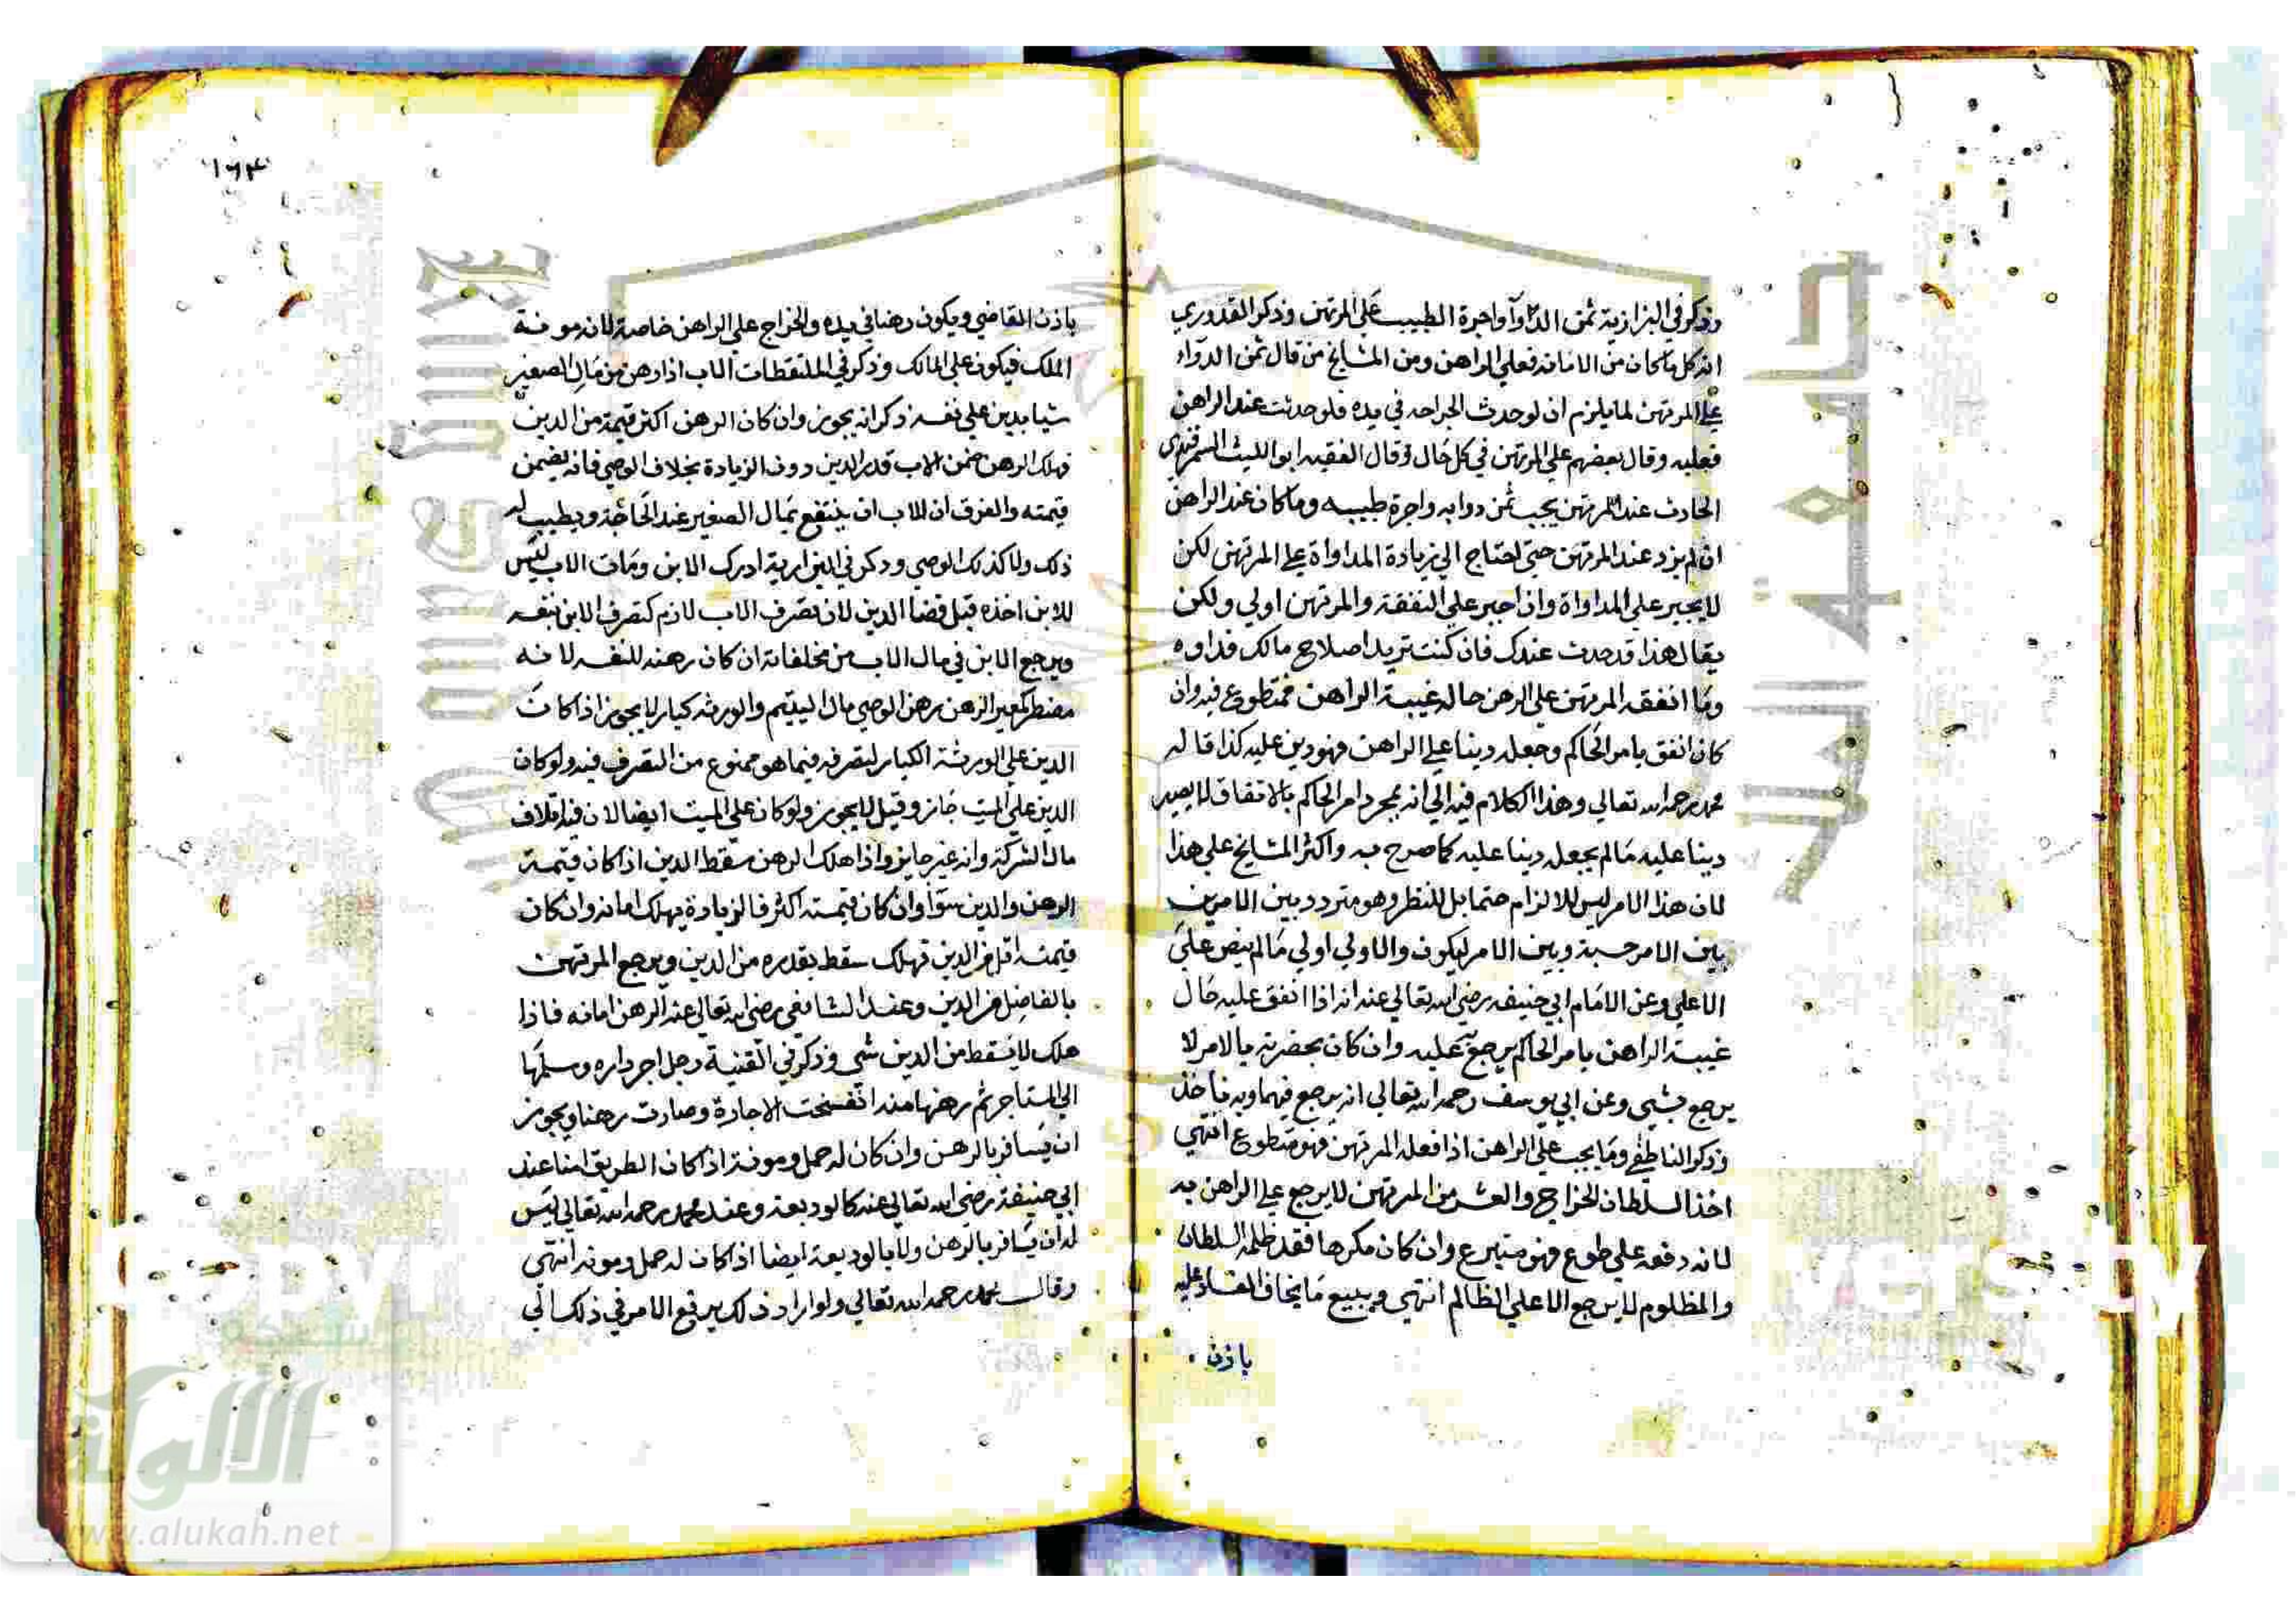 وذكر في البزازية ثمن الدوآ واجرة الطبيب علي المرتهن وذكر القدوري
انه كل ما كان من الامانه فعلي الراهن ومن المشايخ من قال ثمن الدوآء
علي المرتهن لما يلزم ان لو حدث الجراحه في يده فلو حدثت عند الراهن
فعليه وقال بعضهم علي المرتهن في كل حال وقال الفقيه ابو الليث السمرقندي
الحادث عند المرتهن يجب ثمن دوايه واجرة طبيبه وما كان عند الراهن
ان لم يزد عند المرتهن حتي احتاج الي زيادة المداواة علي المرتهن لكن
لا يجبر علي المداواة وان اجبر علي النفقة والمرتهن اولي ولكن
يقال هذا قد حدث عندك فان كنت تريد اصلاح مالك فداوه
وما انفقه المرتهن علي الرهن حالة غيبة الراهن فمتطوع فيه وان
كان انفق بامر الحاكم وجعله دينا علي الراهن فهو دين عليه كذا قاله
محمد رحمه الله تعالي وهذا الكلام فيه الي انه بمجرد امر الحاكم بالانفاق لا يصير
دينا عليه ما لم يجعله دينا عليه كما صرح به واكثر المشايخ علي هذا
لان هذا الامر ليس للالزام حتما بل للنظر وهو متردد بين الامرين
بين الامر حسبة وبين الامر ليكون والاولي اولي ما لم ينص علي
الاعلي وعن الامام ابي حنيفه رضي الله تعالي عنه انه اذا انفق عليه حال
غيبة الراهن بامر الحاكم يرجع عليه وان كان بحضرته بالامر لا
يرجع بشي وعن ابي يوسف رحمه الله تعالي انه يرجع فيهما وبه ناخذ
وذكر الناطفي وما يجب علي الراهن اذا فعله المرتهن فهو متطوع انتهي
اخذ السلطان الخراج والعشر من المرتهن لا يرجع علي الراهن به
لانه دفعه علي طوع فهو متبرع وان كان مكرها فقد ظلمه السلطان
والمظلوم لا يرجع الا علي الظالم انتهي ويبيع ما يخاف الفساد عليه
باذن
١٦٤
باذن القاضي ويكون رهنا في يده والخراج علي الراهن خاصة لانه مونة
الملك فيكون علي المالك وذكر في الملتقطات الاب اذا رهن من مال الصغير
شيا بدين علي نفسه ذكر انه يجوز وان كان الرهن اكثر قيمة من الدين
فهلك الرهن ضمن الاب قدر الدين دون الزيادة بخلاف الوصي فانه يضمن
قيمته والفرق ان للاب ان ينتفع بمال الصغير عند الحاجة ويطيب له
ذلك ولا كذلك الوصي وذكر في البزازية ادرك الابن ومات الاب ليس
للابن اخذه قبل قضا الدين لان تصرف الاب لازم كتصرف الابن بنفسه
ويرجع الابن في مال الاب من مخلفاته ان كان رهنه لنفسه لانه
مضطر كمعير الرهن رهن الوصي مال اليتيم والورثه كبار لا يجوز اذا كان
الدين علي الورثة الكبار لتصرفه فيما هو ممنوع من التصرف فيه ولو كان
الدين علي الميت جاز وقيل لا يجوز ولو كان علي الميت ايضا لان فيه اتلاف
مال الشركة وانه غير جايز واذا هلك الرهن سقط الدين اذا كان قيمة
الرهن والدين سوآ وان كان قيمته اكثر فالزيادة يهلك امانه وان كان
قيمته اقل من الدين فهلك سقط بقدره من الدين ويرجع المرتهن
بالفاضل من الدين وعند الشافعي رضي الله تعالي عنه الرهن امانه فاذا
هلك لا يسقط من الدين شي وذكر في القنية رجل اجر داره وسلمها
الي المستاجر ثم رهنها منه انفسخت الاجارة وصارت رهنا ويجوز
ان يسافر بالرهن وان كان له حمل ومونة اذا كان الطريق امنا عند
ابي حنيفة رضي الله تعالي عنه كالوديعة وعند محمد رحمه الله تعالي ليس
له ان يسافر بالرهن ولا بالوديعة ايضا اذا كان له حمل ومونه انتهي
وقال محمد رحمه الله تعالي ولو اراد ذلك يرفع الامر في ذلك الي
شبكة
الألوكة
www.alukah.net